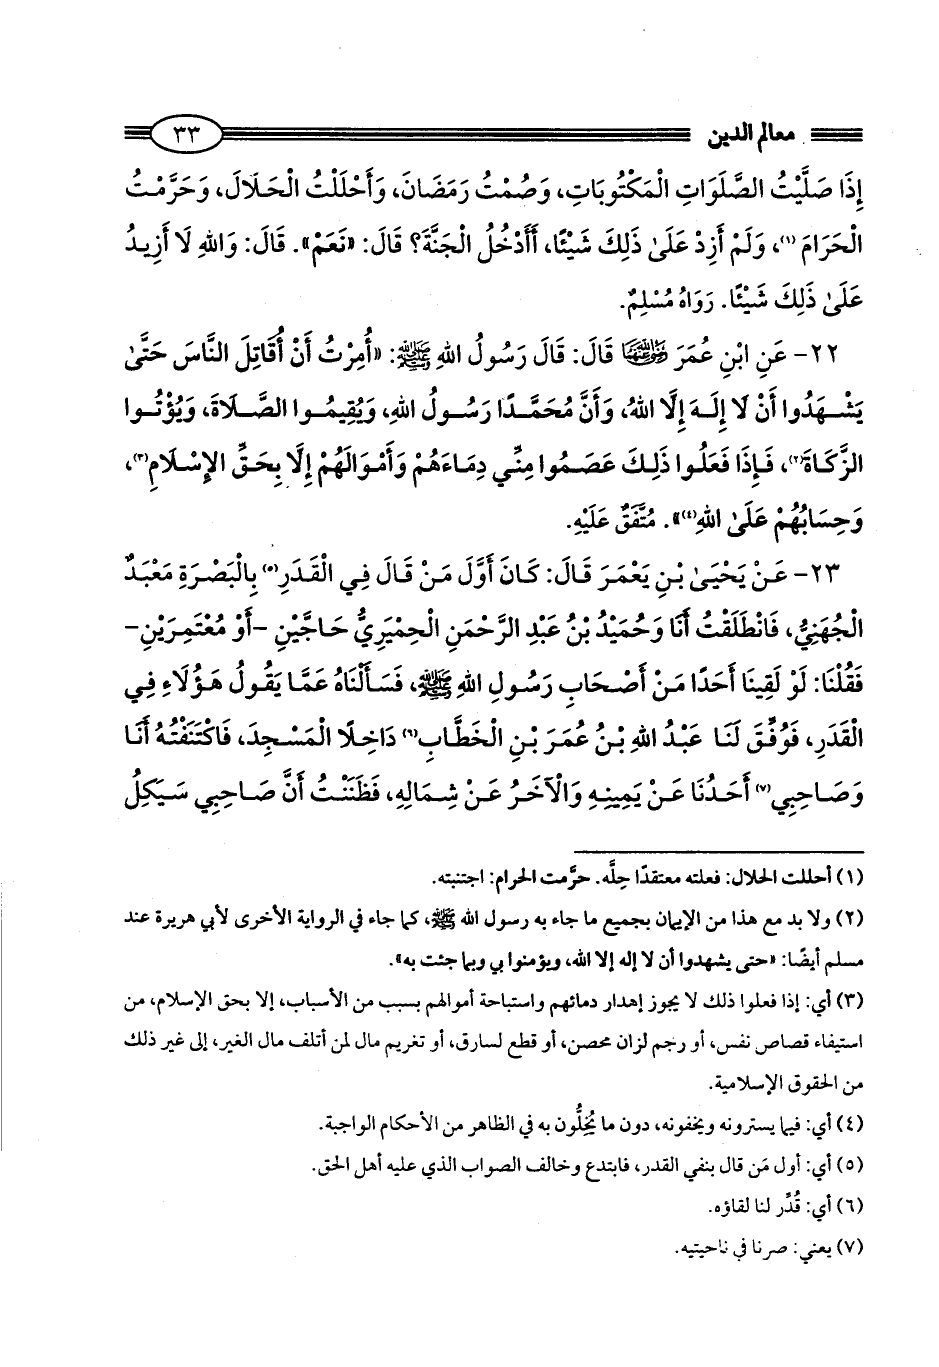 معالم الدين ٣٣
إِذَا صَلَّيْتُ الصَّلَوَاتِ الْمَكْتُوبَاتِ، وَصُمْتُ رَمَضَانَ، وَأَحْلَلْتُ الْحَلَالَ، وَحَرَّمْتُ
الْحَرَامَ(١)، وَلَمْ أَزِدْ عَلَىٰ ذَلِكَ شَيْئًا، أَأَدْخُلُ الْجَنَّةَ؟ قَالَ: «نَعَمْ». قَالَ: وَاللهِ لَا أَزِيدُ
عَلَىٰ ذَلِكَ شَيْئًا. رَوَاهُ مُسْلِمٌ.
٢٢- عَنِ ابْنِ عُمَرَ رضي الله عنهما قَالَ: قَالَ رَسُولُ اللهِ ﷺ: «أُمِرْتُ أَنْ أُقَاتِلَ النَّاسَ حَتَّىٰ
يَشْهَدُوا أَنْ لَا إِلَهَ إِلَّا اللهُ، وَأَنَّ مُحَمَّدًا رَسُولُ اللهِ، وَيُقِيمُوا الصَّلَاةَ، وَيُؤْتُوا
الزَّكَاةَ(٢)، فَإِذَا فَعَلُوا ذَلِكَ عَصَمُوا مِنِّي دِمَاءَهُمْ وَأَمْوَالَهُمْ إِلَّا بِحَقِّ الإِسْلَامِ(٣)،
وَحِسَابُهُمْ عَلَىٰ اللهِ(٤)». مُتَّفَقٌ عَلَيْهِ.
٢٣- عَنْ يَحْيَىٰ بْنِ يَعْمَرَ قَالَ: كَانَ أَوَّلَ مَنْ قَالَ فِي الْقَدَرِ(٥) بِالْبَصْرَةِ مَعْبَدٌ
الْجُهَنِيُّ، فَانْطَلَقْتُ أَنَا وَحُمَيْدُ بْنُ عَبْدِ الرَّحْمَنِ الْحِمْيَرِيُّ حَاجَّيْنِ -أَوْ مُعْتَمِرَيْنِ-
فَقُلْنَا: لَوْ لَقِينَا أَحَدًا مَنْ أَصْحَابِ رَسُولِ اللهِ ﷺ، فَسَأَلْنَاهُ عَمَّا يَقُولُ هَؤُلَاءِ فِي
الْقَدَرِ، فَوُفِّقَ لَنَا عَبْدُ اللهِ بْنُ عُمَرَ بْنِ الْخَطَّابِ(٦) دَاخِلًا الْمَسْجِدَ، فَاكْتَنَفْتُهُ أَنَا
وَصَاحِبِي(٧) أَحَدُنَا عَنْ يَمِينِهِ وَالْآخَرُ عَنْ شِمَالِهِ، فَظَنَنْتُ أَنَّ صَاحِبِي سَيَكِلُ
(١) أحللت الحلال: فعلته معتقدًا حِلَّه. حرَّمت الحرام: اجتنبته.
(٢) ولا بد مع هذا من الإيمان بجميع ما جاء به رسول الله ﷺ، كما جاء في الرواية الأخرى لأبي هريرة عند
مسلم أيضًا: «حتى يشهدوا أن لا إله إلا الله، ويؤمنوا بي وبما جئت به».
(٣) أي: إذا فعلوا ذلك لا يجوز إهدار دمائهم واستباحة أموالهم بسبب من الأسباب، إلا بحق الإسلام، من
استيفاء قصاص نفس، أو رجم لزان محصن، أو قطع لسارق، أو تغريم مال لمن أتلف مال الغير، إلى غير ذلك
من الحقوق الإسلامية.
(٤) أي: فيما يسترونه ويخفونه، دون ما يُخِلُّون به في الظاهر من الأحكام الواجبة.
(٥) أي: أول مَن قال بنفي القدر، فابتدع وخالف الصواب الذي عليه أهل الحق.
(٦) أي: قُدِّر لنا لقاؤه.
(٧) يعني: صرنا في ناحيتيه.